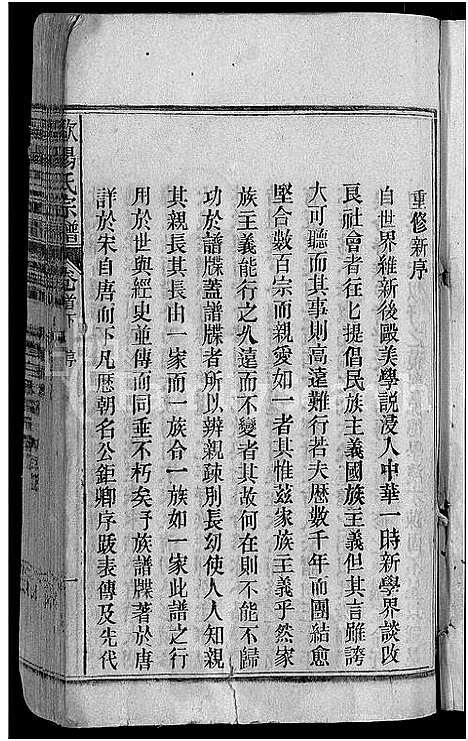 重修新序
自世界維新後歐美學説浸入中華一時新學界談改
良社會者往匕提倡民族主義國族主義但其言雖誇
大可聽而其事則高遠難行若夫歷數千年而團結愈
堅合數百宗而親愛如一者其惟茲家族主義乎然家
族主義能行之久遠而不變者其故何在則不能不歸
功於譜牒蓋譜牒者所以辨親疎別長幼使人人知親
其親長其長由一家而一族合一族如一家此譜之行
用於世與經史並傳而同垂不朽矣予族譜牒著於唐
詳於宋自唐而下凡歷朝名公鉅卿序跋表傳及先代
歐陽氏宗譜 卷首下 序 一